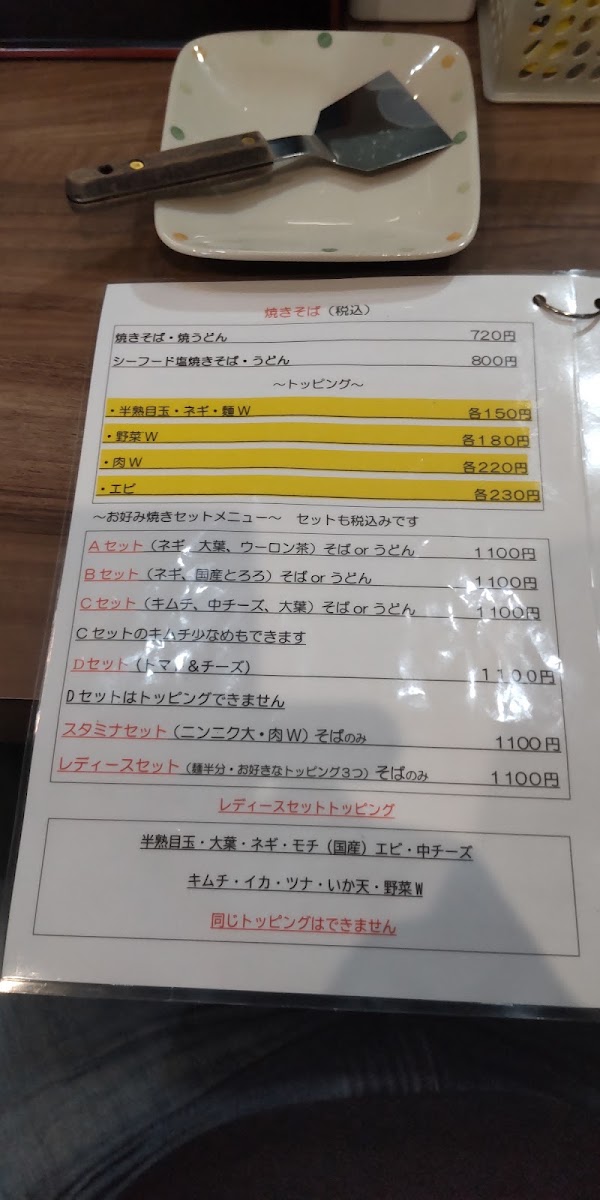 焼きそば（税込）
焼きそば・焼うどん 720円
シーフード塩焼きそば・うどん 800円
～トッピング～
・半熟目玉・ネギ・麺W 各150円
・野菜W 各180円
・肉W 各220円
・エビ 各230円
～お好み焼きセットメニュー～ セットも税込みです
Aセット（ネギ、大葉、ウーロン茶）そば or うどん 1100円
Bセット（ネギ、国産とろろ）そば or うどん 1100円
Cセット（キムチ、中チーズ、大葉）そば or うどん 1100円
Cセットのキムチ少なめもできます
Dセット（トマト＆チーズ） 1100円
Dセットはトッピングできません
スタミナセット（ニンニク大・肉W）そばのみ 1100円
レディースセット（麺半分・お好きなトッピング3つ）そばのみ 1100円
レディースセットトッピング
半熟目玉・大葉・ネギ・モチ（国産）エビ・中チーズ
キムチ・イカ・ツナ・いか天・野菜W
同じトッピングはできません